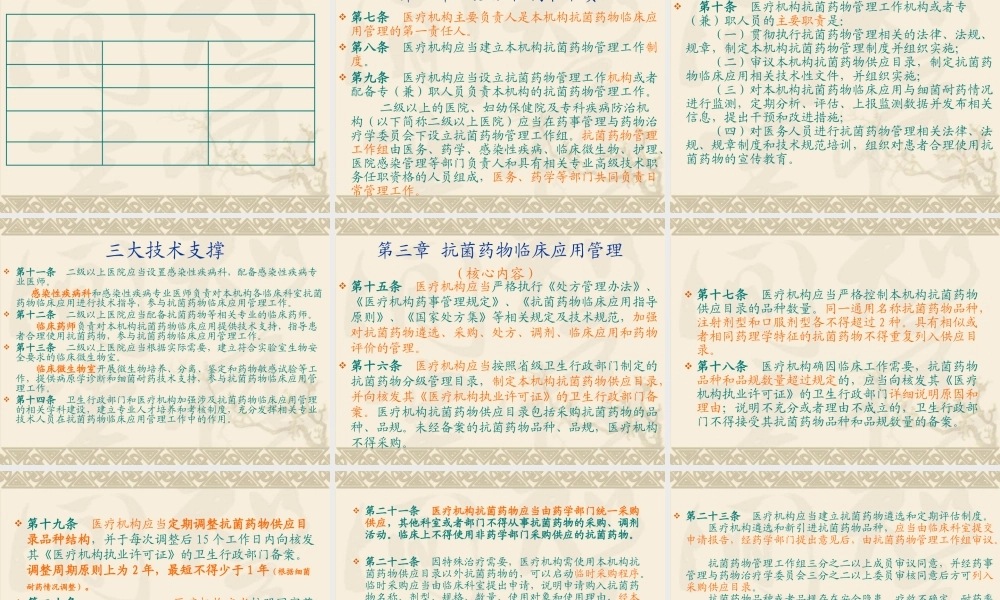 第七条　医疗机构主要负责人是本机构抗菌药物临床应
用管理的第一责任人。
第八条　医疗机构应当建立本机构抗菌药物管理工作制
度。
第九条　医疗机构应当设立抗菌药物管理工作机构或者
配备专（兼）职人员负责本机构的抗菌药物管理工作。
二级以上的医院、妇幼保健院及专科疾病防治机
构（以下简称二级以上医院）应当在药事管理与药物治
疗学委员会下设立抗菌药物管理工作组。抗菌药物管理
工作组由医务、药学、感染性疾病、临床微生物、护理、
医院感染管理等部门负责人和具有相关专业高级技术职
务任职资格的人员组成，医务、药学等部门共同负责日
常管理工作。
第十条　医疗机构抗菌药物管理工作机构或者专
（兼）职人员的主要职责是：
（一）贯彻执行抗菌药物管理相关的法律、法规、
规章，制定本机构抗菌药物管理制度并组织实施；
（二）审议本机构抗菌药物供应目录，制定抗菌药
物临床应用相关技术性文件，并组织实施；
（三）对本机构抗菌药物临床应用与细菌耐药情况
进行监测，定期分析、评估、上报监测数据并发布相关
信息，提出干预和改进措施；
（四）对医务人员进行抗菌药物管理相关法律、法
规、规章制度和技术规范培训，组织对患者合理使用抗
菌药物的宣传教育。
三大技术支撑
第十一条　二级以上医院应当设置感染性疾病科，配备感染性疾病专
业医师。
感染性疾病科和感染性疾病专业医师负责对本机构各临床科室抗菌
药物临床应用进行技术指导，参与抗菌药物临床应用管理工作。
第十二条　二级以上医院应当配备抗菌药物等相关专业的临床药师。
临床药师负责对本机构抗菌药物临床应用提供技术支持，指导患
者合理使用抗菌药物，参与抗菌药物临床应用管理工作。
第十三条　二级以上医院应当根据实际需要，建立符合实验室生物安
全要求的临床微生物室。
临床微生物室开展微生物培养、分离、鉴定和药物敏感试验等工
作，提供病原学诊断和细菌耐药技术支持，参与抗菌药物临床应用管
理工作。
第十四条　卫生行政部门和医疗机构加强涉及抗菌药物临床应用管理
的相关学科建设，建立专业人才培养和考核制度，充分发挥相关专业
技术人员在抗菌药物临床应用管理工作中的作用。
第三章 抗菌药物临床应用管理
（核心内容）
第十五条　医疗机构应当严格执行《处方管理办法》、
《医疗机构药事管理规定》、《抗菌药物临床应用指导
原则》、《国家处方集》等相关规定及技术规范，加强
对抗菌药物遴选、采购、处方、调剂、临床应用和药物
评价的管理。
第十六条　医疗机构应当按照省级卫生行政部门制定的
抗菌药物分级管理目录，制定本机构抗菌药物供应目录，
并向核发其《医疗机构执业许可证》的卫生行政部门备
案。医疗机构抗菌药物供应目录包括采购抗菌药物的品
种、品规。未经备案的抗菌药物品种、品规，医疗机构
不得采购。
第十七条　医疗机构应当严格控制本机构抗菌药物
供应目录的品种数量。同一通用名称抗菌药物品种，
注射剂型和口服剂型各不得超过2种。具有相似或
者相同药理学特征的抗菌药物不得重复列入供应目
录。
第十八条　医疗机构确因临床工作需要，抗菌药物
品种和品规数量超过规定的，应当向核发其《医疗
机构执业许可证》的卫生行政部门详细说明原因和
理由；说明不充分或者理由不成立的，卫生行政部
门不得接受其抗菌药物品种和品规数量的备案。
第十九条　医疗机构应当定期调整抗菌药物供应目
录品种结构，并于每次调整后15个工作日内向核发
其《医疗机构执业许可证》的卫生行政部门备案。
调整周期原则上为2年，最短不得少于1年（根据细菌
耐药情况调整）。
第二十一条　医疗机构抗菌药物应当由药学部门统一采购
供应，其他科室或者部门不得从事抗菌药物的采购、调剂
活动。临床上不得使用非药学部门采购供应的抗菌药物。
第二十二条　因特殊治疗需要，医疗机构需使用本机构抗
菌药物供应目录以外抗菌药物的，可以启动临时采购程序。
临时采购应当由临床科室提出申请，说明申请购入抗菌药
物名称、剂型、规格、数量、使用对象和使用理由，经本
第二十三条　医疗机构应当建立抗菌药物遴选和定期评估制度。
医疗机构遴选和新引进抗菌药物品种，应当由临床科室提交
申请报告，经药学部门提出意见后，由抗菌药物管理工作组审议。
抗菌药物管理工作组三分之二以上成员审议同意，并经药事
管理与药物治疗学委员会三分之二以上委员审核同意后方可列入
采购供应目录。